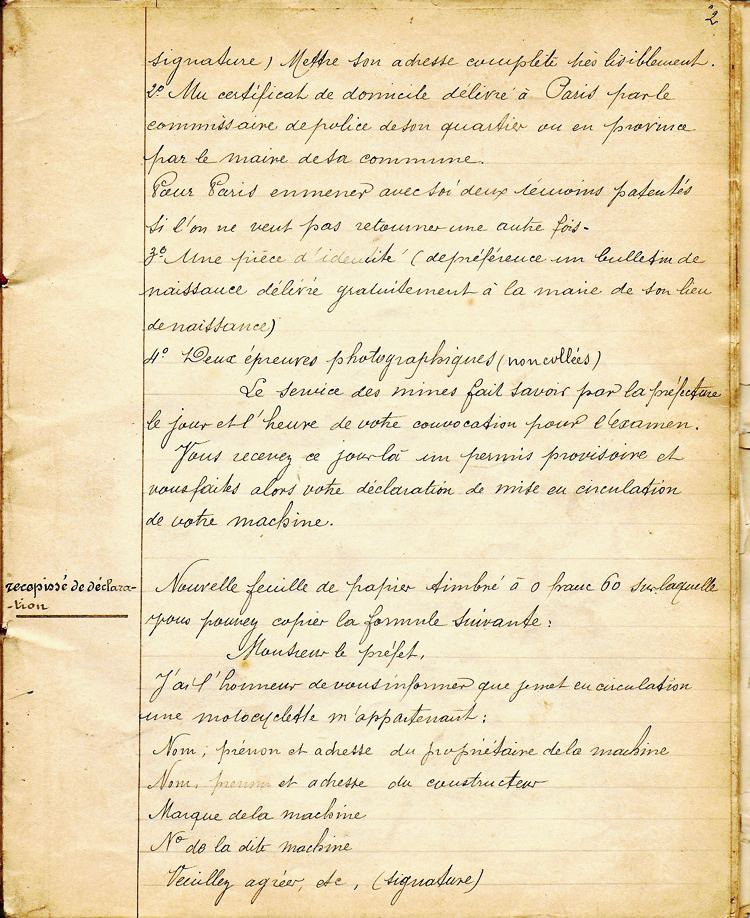 2
signature) Mettre son adresse complète très lisiblement.
2º Un certificat de domicile délivré à Paris par le
commissaire de police de son quartier ou en province
par le maire de sa commune.
Pour Paris emmener avec soi deux témoins patentés
si l'on ne veut pas retourner une autre fois.
3º Une pièce d'identité (de préférence un bulletin de
naissance délivrée gratuitement à la mairie de son lieu
de naissance)
4º Deux épreuves photographiques (non collées)
Le service des mines fait savoir par la préfecture
le jour et l'heure de votre convocation pour l'examen.
Vous recevez ce jour là un permis provisoire et
vous faites alors votre déclaration de mise en circulation
de votre machine.
recepissé de déclara-
-tion
Nouvelle feuille de papier timbré à 0 franc 60 sur laquelle
vous pouvez copier la formule suivante :
Monsieur le préfet,
J'ai l'honneur de vous informer que je met en circulation
une motocyclette m'appartenant :
Nom, prénom et adresse du propriétaire de la machine
Nom, prénom et adresse du constructeur
Marque de la machine
Nº de la dite machine
Veuillez agréer, etc, (signature)